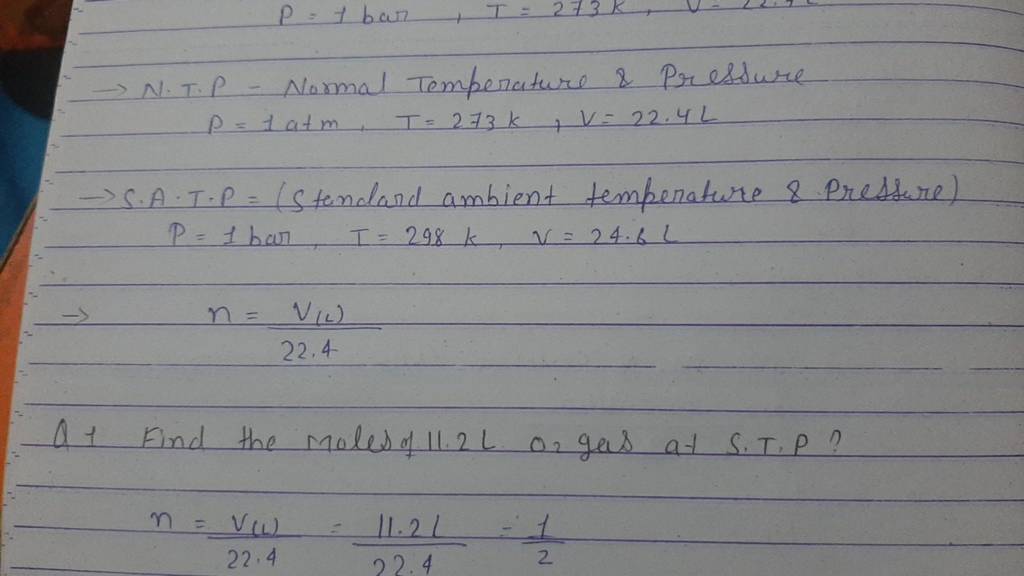 P = 1 bar , T = 273 k , V = 22.4 L
→ N.T.P - Normal Temperature & Pressure
P = 1 atm , T = 273 k , V = 22.4 L
→ S.A.T.P = (Standard ambient temperature & Pressure)
P = 1 bar , T = 298 k , V = 24.6 L
→ n = V(L)
22.4
Q 1 Find the moles of 11.2 L O2 gas at S.T.P ?
n = V(L) = 11.2 L = 1
22.4 22.4 2